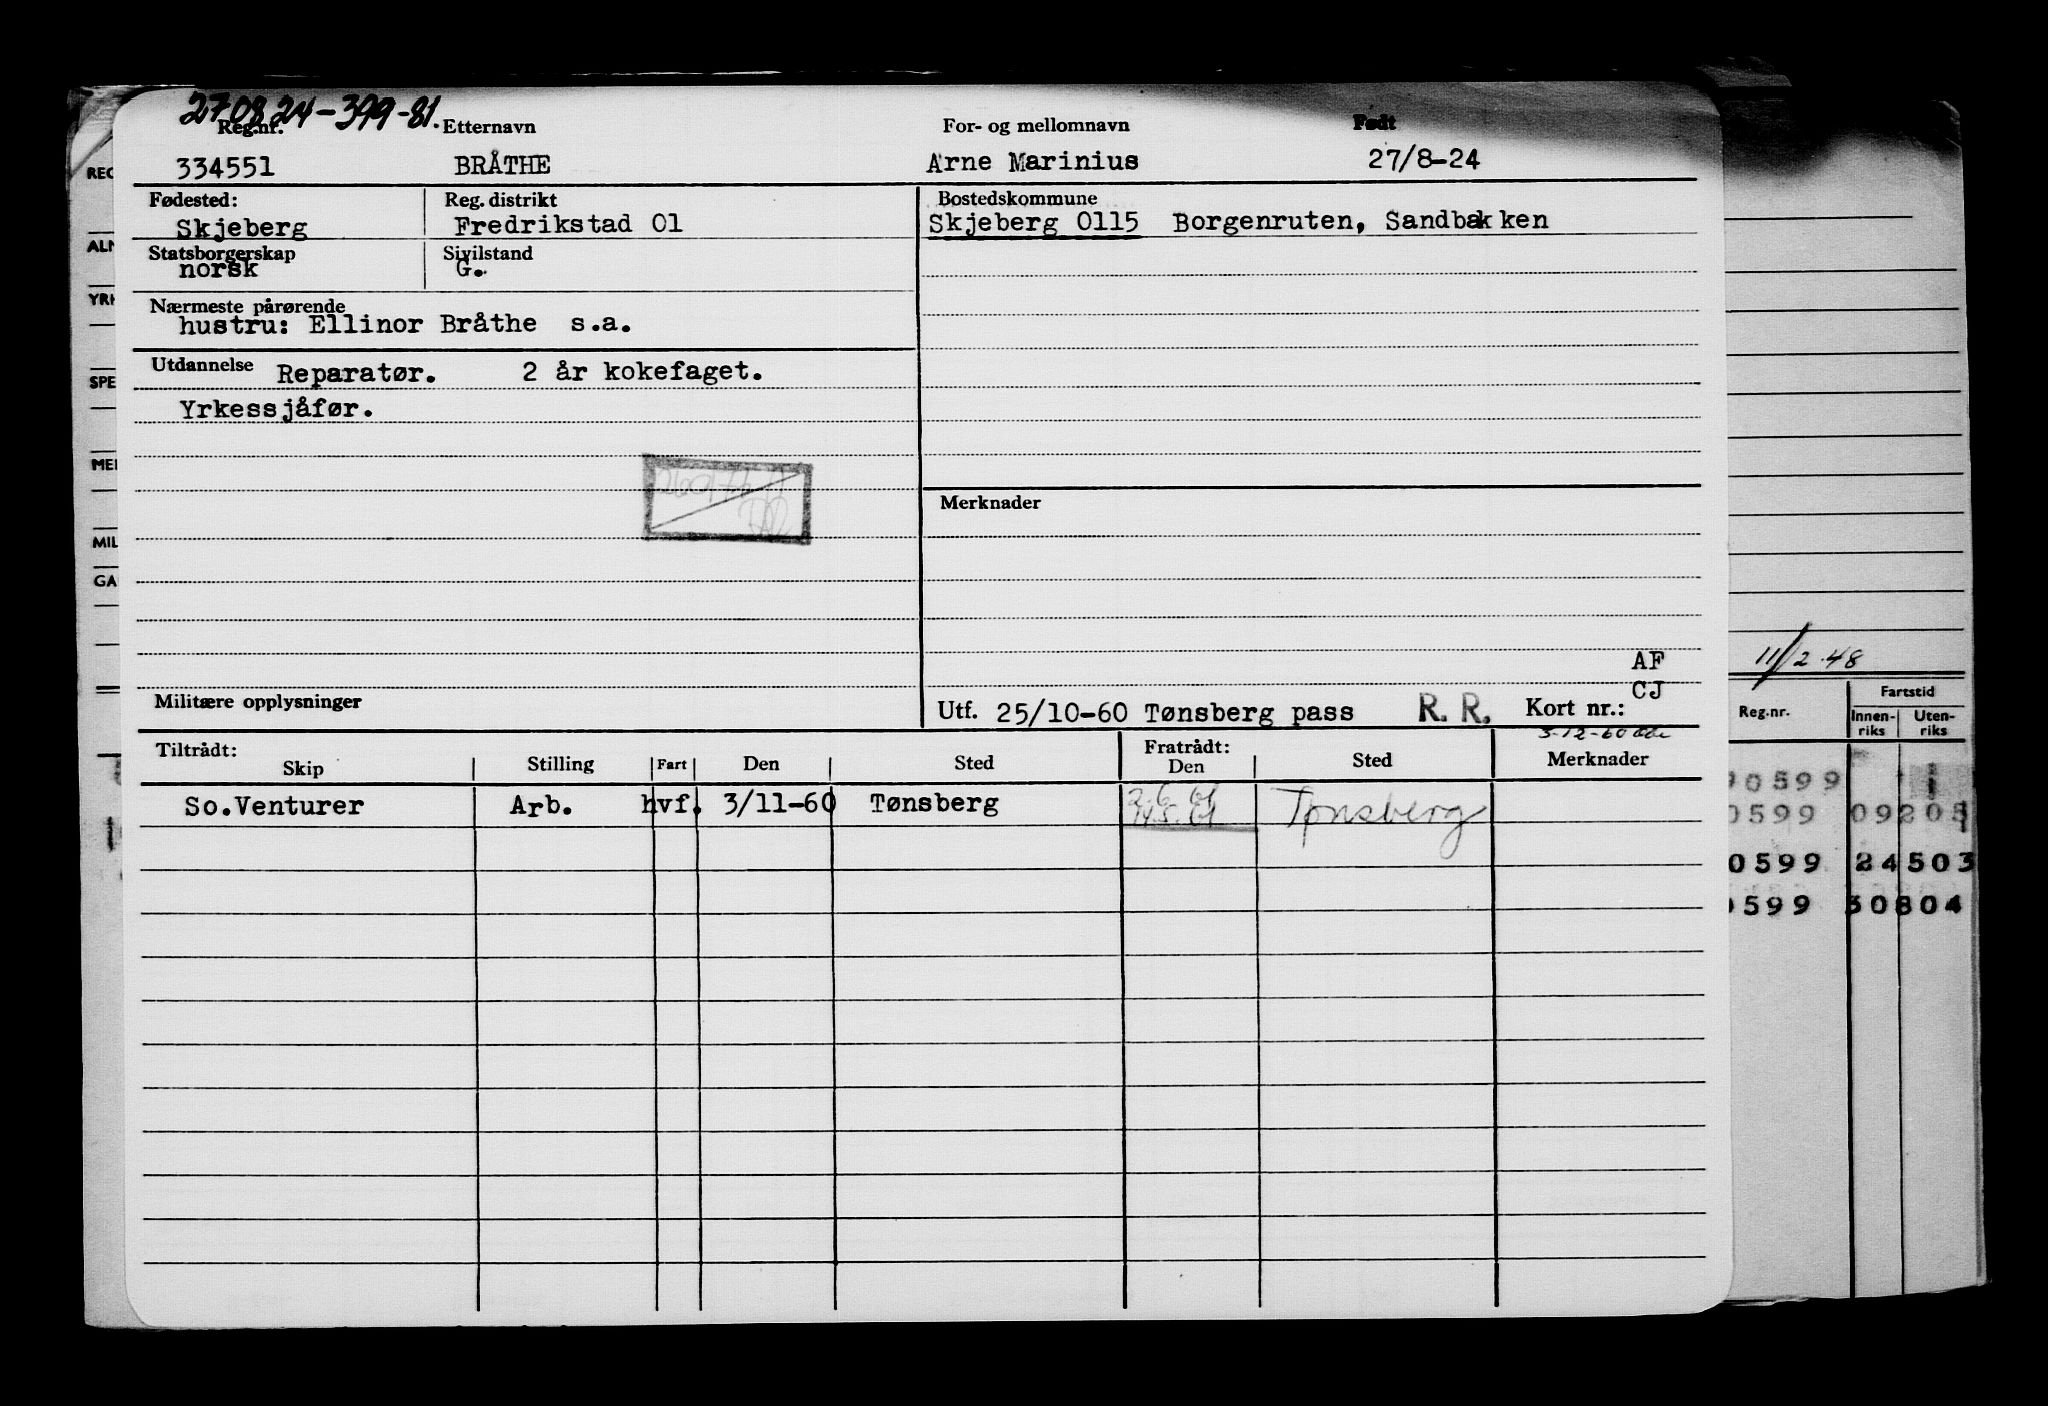 270824-399-81.
Reg.nr. Etternavn For- og mellomnavn Født
334551 BRÅTHE Arne Marinius 27/8-24
Fødested: Reg. distrikt Bostedskommune
Skjeberg Fredrikstad 01 Skjeberg 0115 Borgenruten, Sandbakken
Statsborgerskap Sivilstand
norsk G.
Nærmeste pårørende
hustru: Ellinor Bråthe s.a.
Utdannelse Reparatør. 2 år kokefaget.
Yrkessjåfør.
Merknader
AF
CJ
Militære opplysninger
Utf. 25/10-60 Tønsberg pass R. R. Kort nr.:
3-12-60
Tiltrådt: Fratrådt:
Skip Stilling Fart Den Sted Den Sted Merknader
So.Venturer Arb. hvf. 3/11-60 Tønsberg Tønsberg
REG
ALM
YRK
SPE
MEI
MIL
GA
11/2.48
Reg.nr. Fartstid
Innen-riks Uten-riks
90599
0599 09205
0599 24503
0599 30804